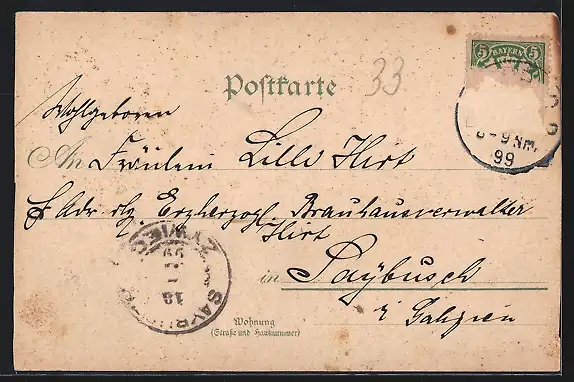 5 BAYERN 5
Postkarte
33
8-9 NM.
99
Wohlgeboren
An Fräulein Lilli Hirt
Adr. Erzherzogl. Brauhausverwalter
Hirt
in Saybusch
Galizien
ZYWIEC
99
18
SAYBUSCH
Wohnung
(Straße und Hausnummer)